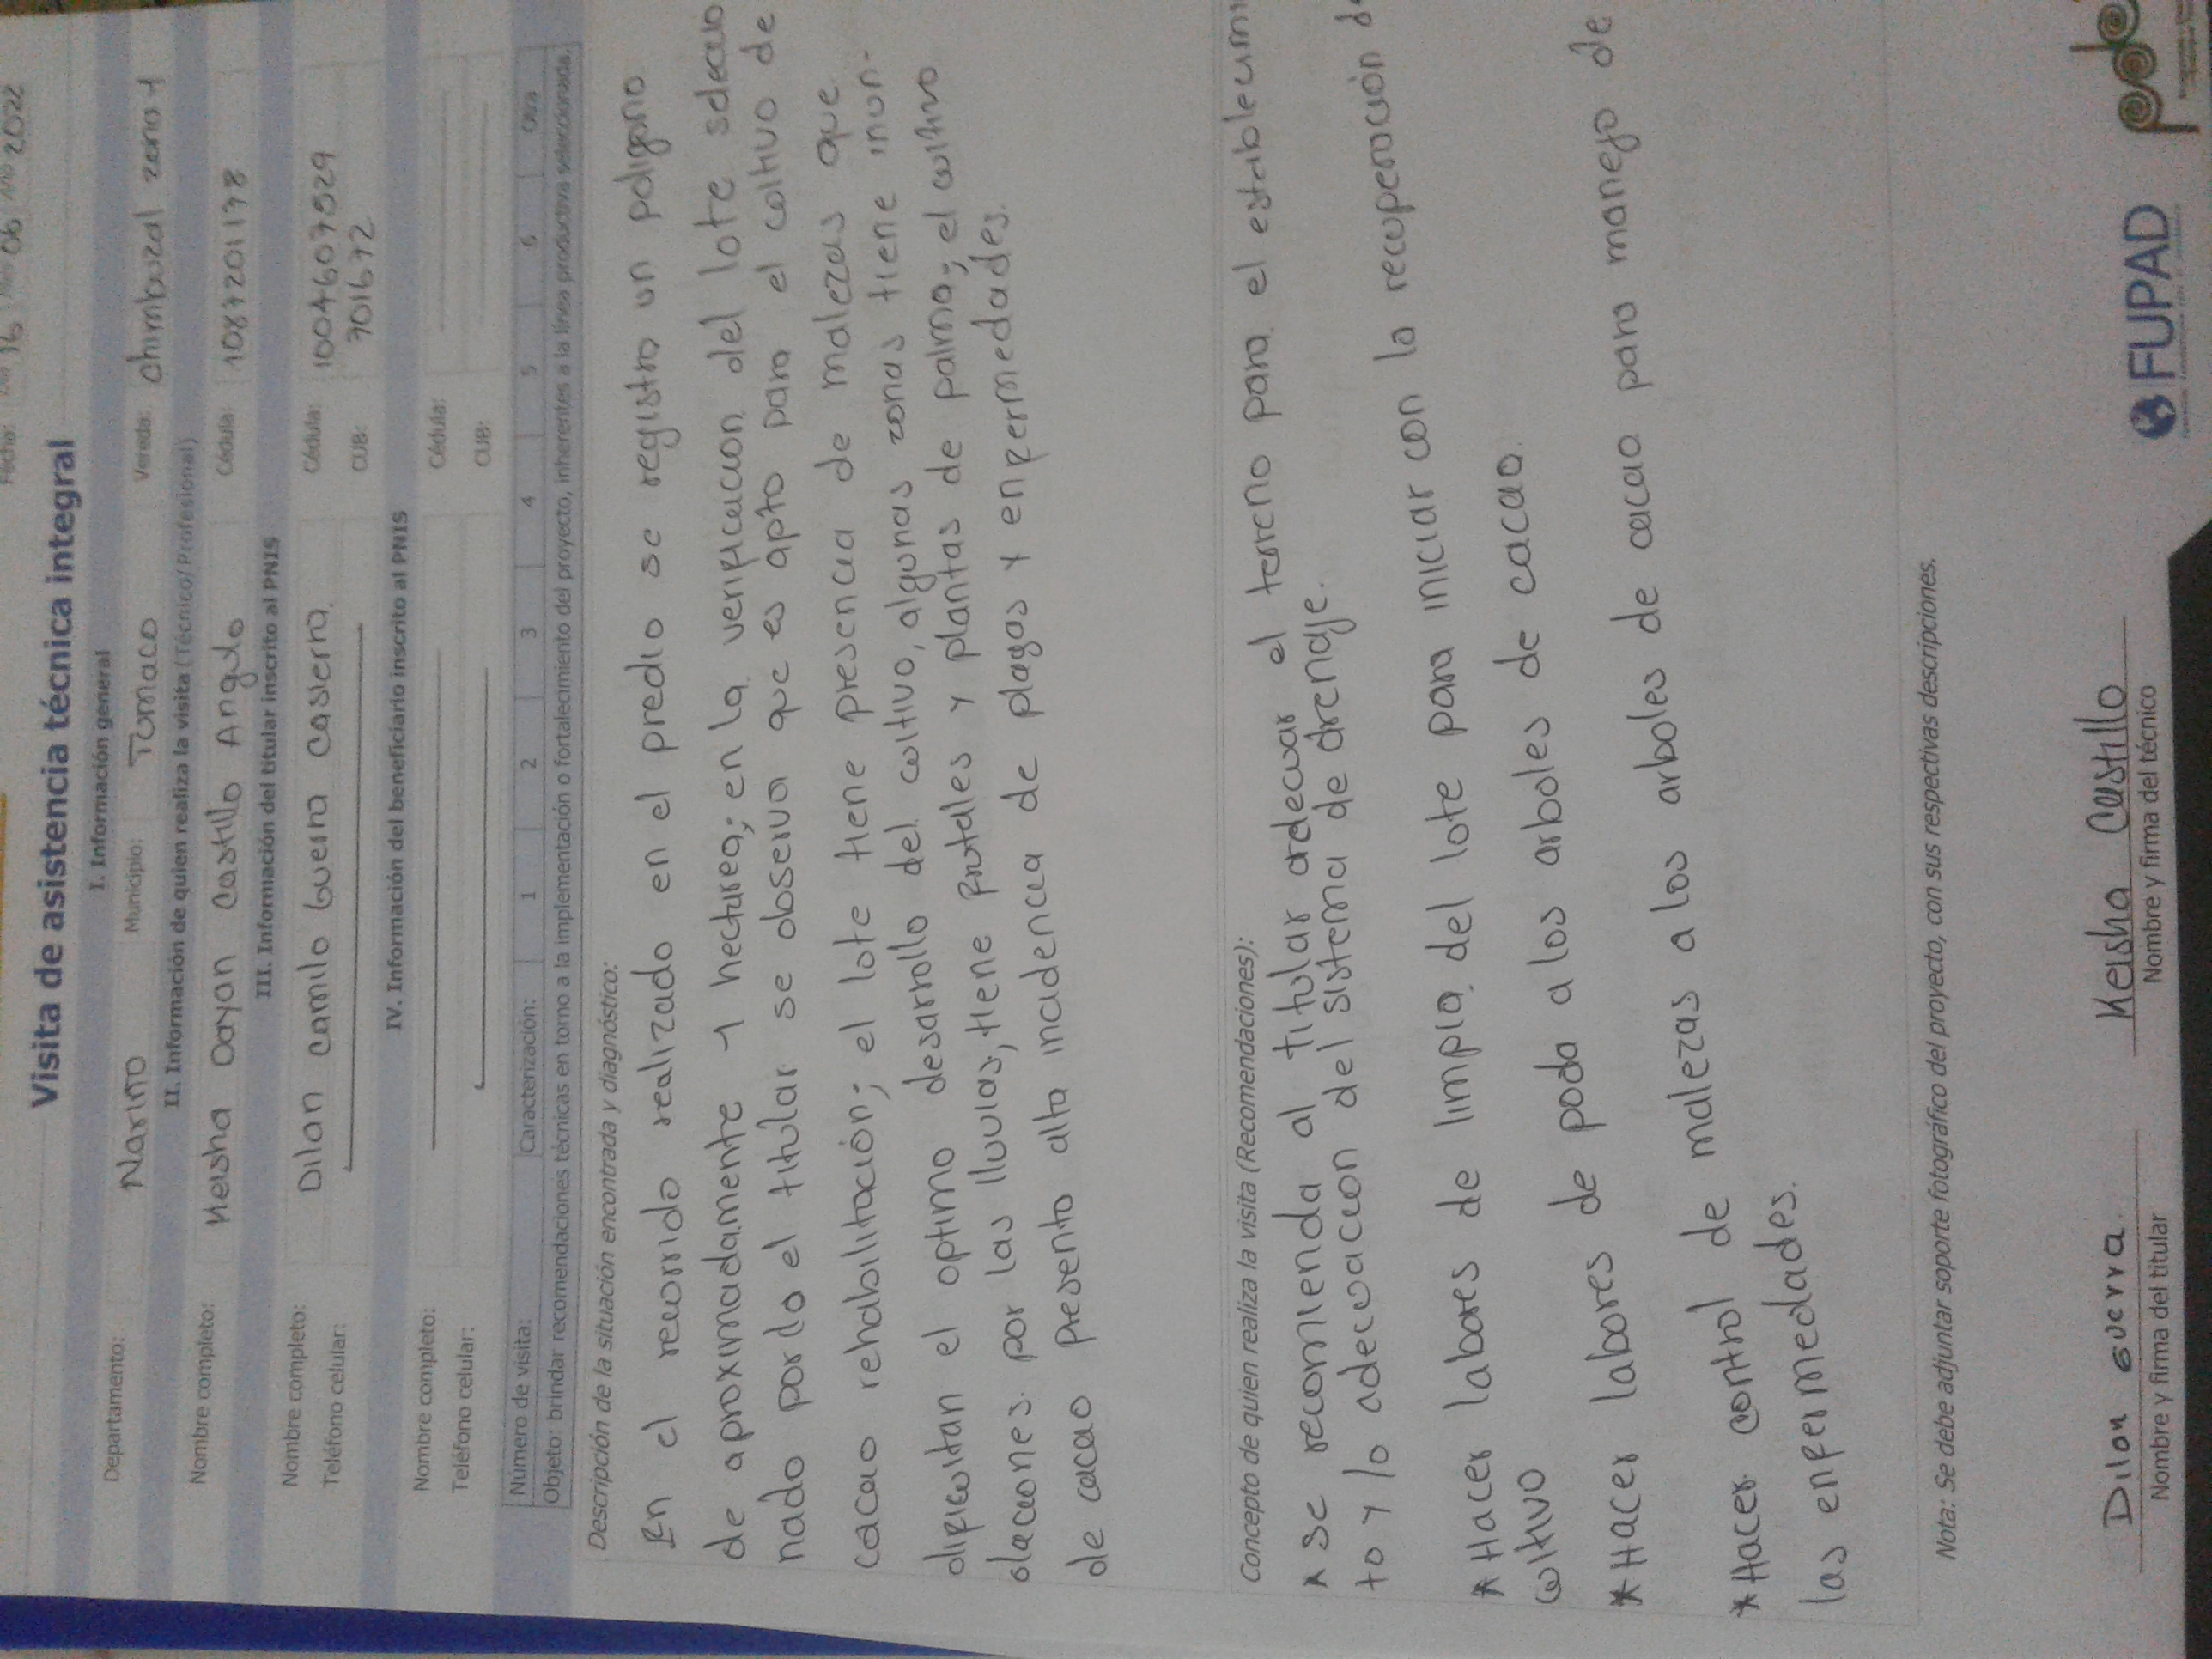 Fecha: Día 16 Mes 06 Año 2022
Visita de asistencia técnica integral
I. Información general
Departamento: Nariño Municipio: Tumaco Vereda: chimbuzal zona 1
II. Información de quien realiza la visita (Técnico/Profesional)
Nombre completo: Keisha Dayan Castillo Angulo Cédula: 1087201178
III. Información del titular inscrito al PNIS
Nombre completo: Dilan camilo Guerra casierra. Cédula: 1004607529
Teléfono celular: CUB: 701672
IV. Información del beneficiario inscrito al PNIS
Nombre completo: Cédula:
Teléfono celular: CUB:
Número de visita: Caracterización: 1 2 3 4 5 6 Otra
Objeto: brindar recomendaciones técnicas en torno a la implementación o fortalecimiento del proyecto, inherentes a la línea productiva seleccionada.
Descripción de la situación encontrada y diagnóstico:
En el recorrido realizado en el predio se registro un poligono
de aproximadamente 1 hectarea; en la verificacion del lote seleccio
nado por do el titular se observa que es apto para el coltivo de
cacao rehabilitación; el lote tiene presencia de malezas que
dificultan el optimo desarrollo del cultivo, algunas zonas tiene inun-
olaciones por las lluvias, tiene frutales y plantas de palma; el cultivo
de cacao presenta alta incidencia de plagas y enfermedades.
Concepto de quien realiza la visita (Recomendaciones):
* se recomienda al titular adecuar el terreno para el establecimi
to y la adecuacion del sistema de drenaje.
* Hacer labores de limpia del lote para iniciar con la recuperación d
cultivo
* Hacer labores de poda a los arboles de cacao.
* Hacer control de malezas a los arboles de cacao para manejo de
las enfermedades.
Nota: Se debe adjuntar soporte fotográfico del proyecto, con sus respectivas descripciones.
Dilan Guerra.
Nombre y firma del titular
Keisha Castillo
Nombre y firma del técnico
FUPAD